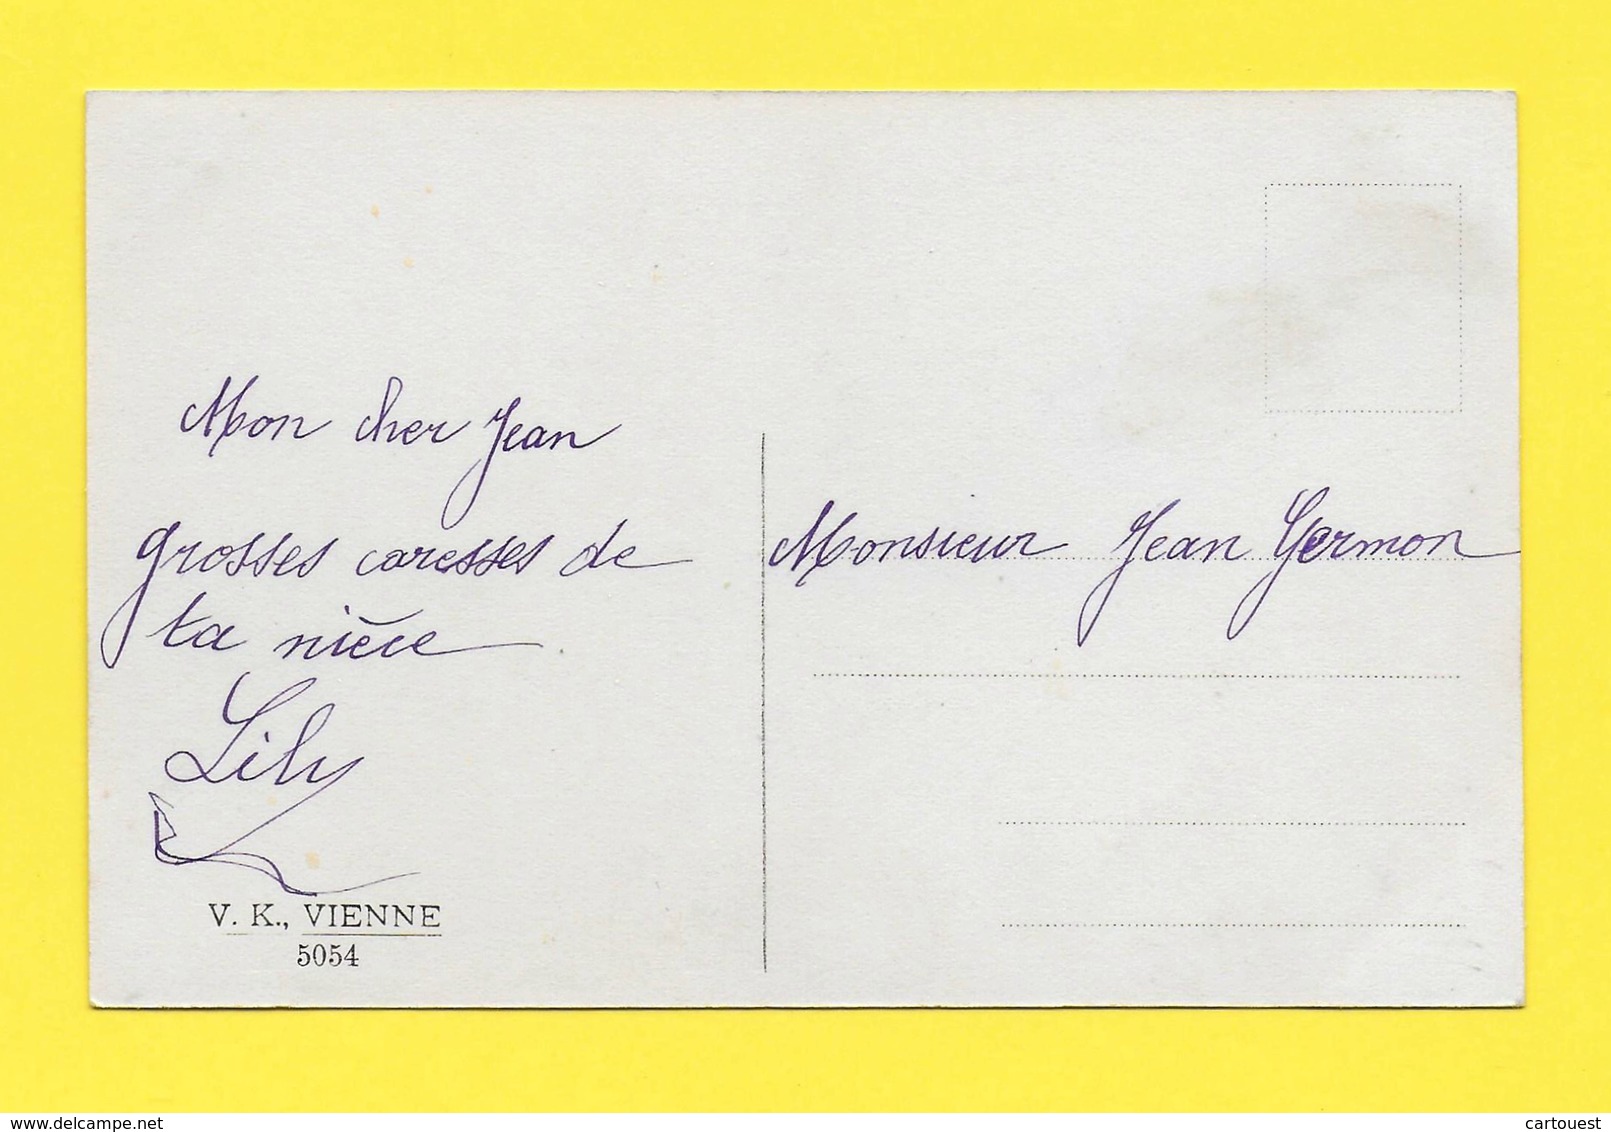 Mon cher Jean
grosses caresses de
ta nièce
Lily
V. K., VIENNE
5054
Monsieur Jean Germon
www.delcampe.net
cartouest